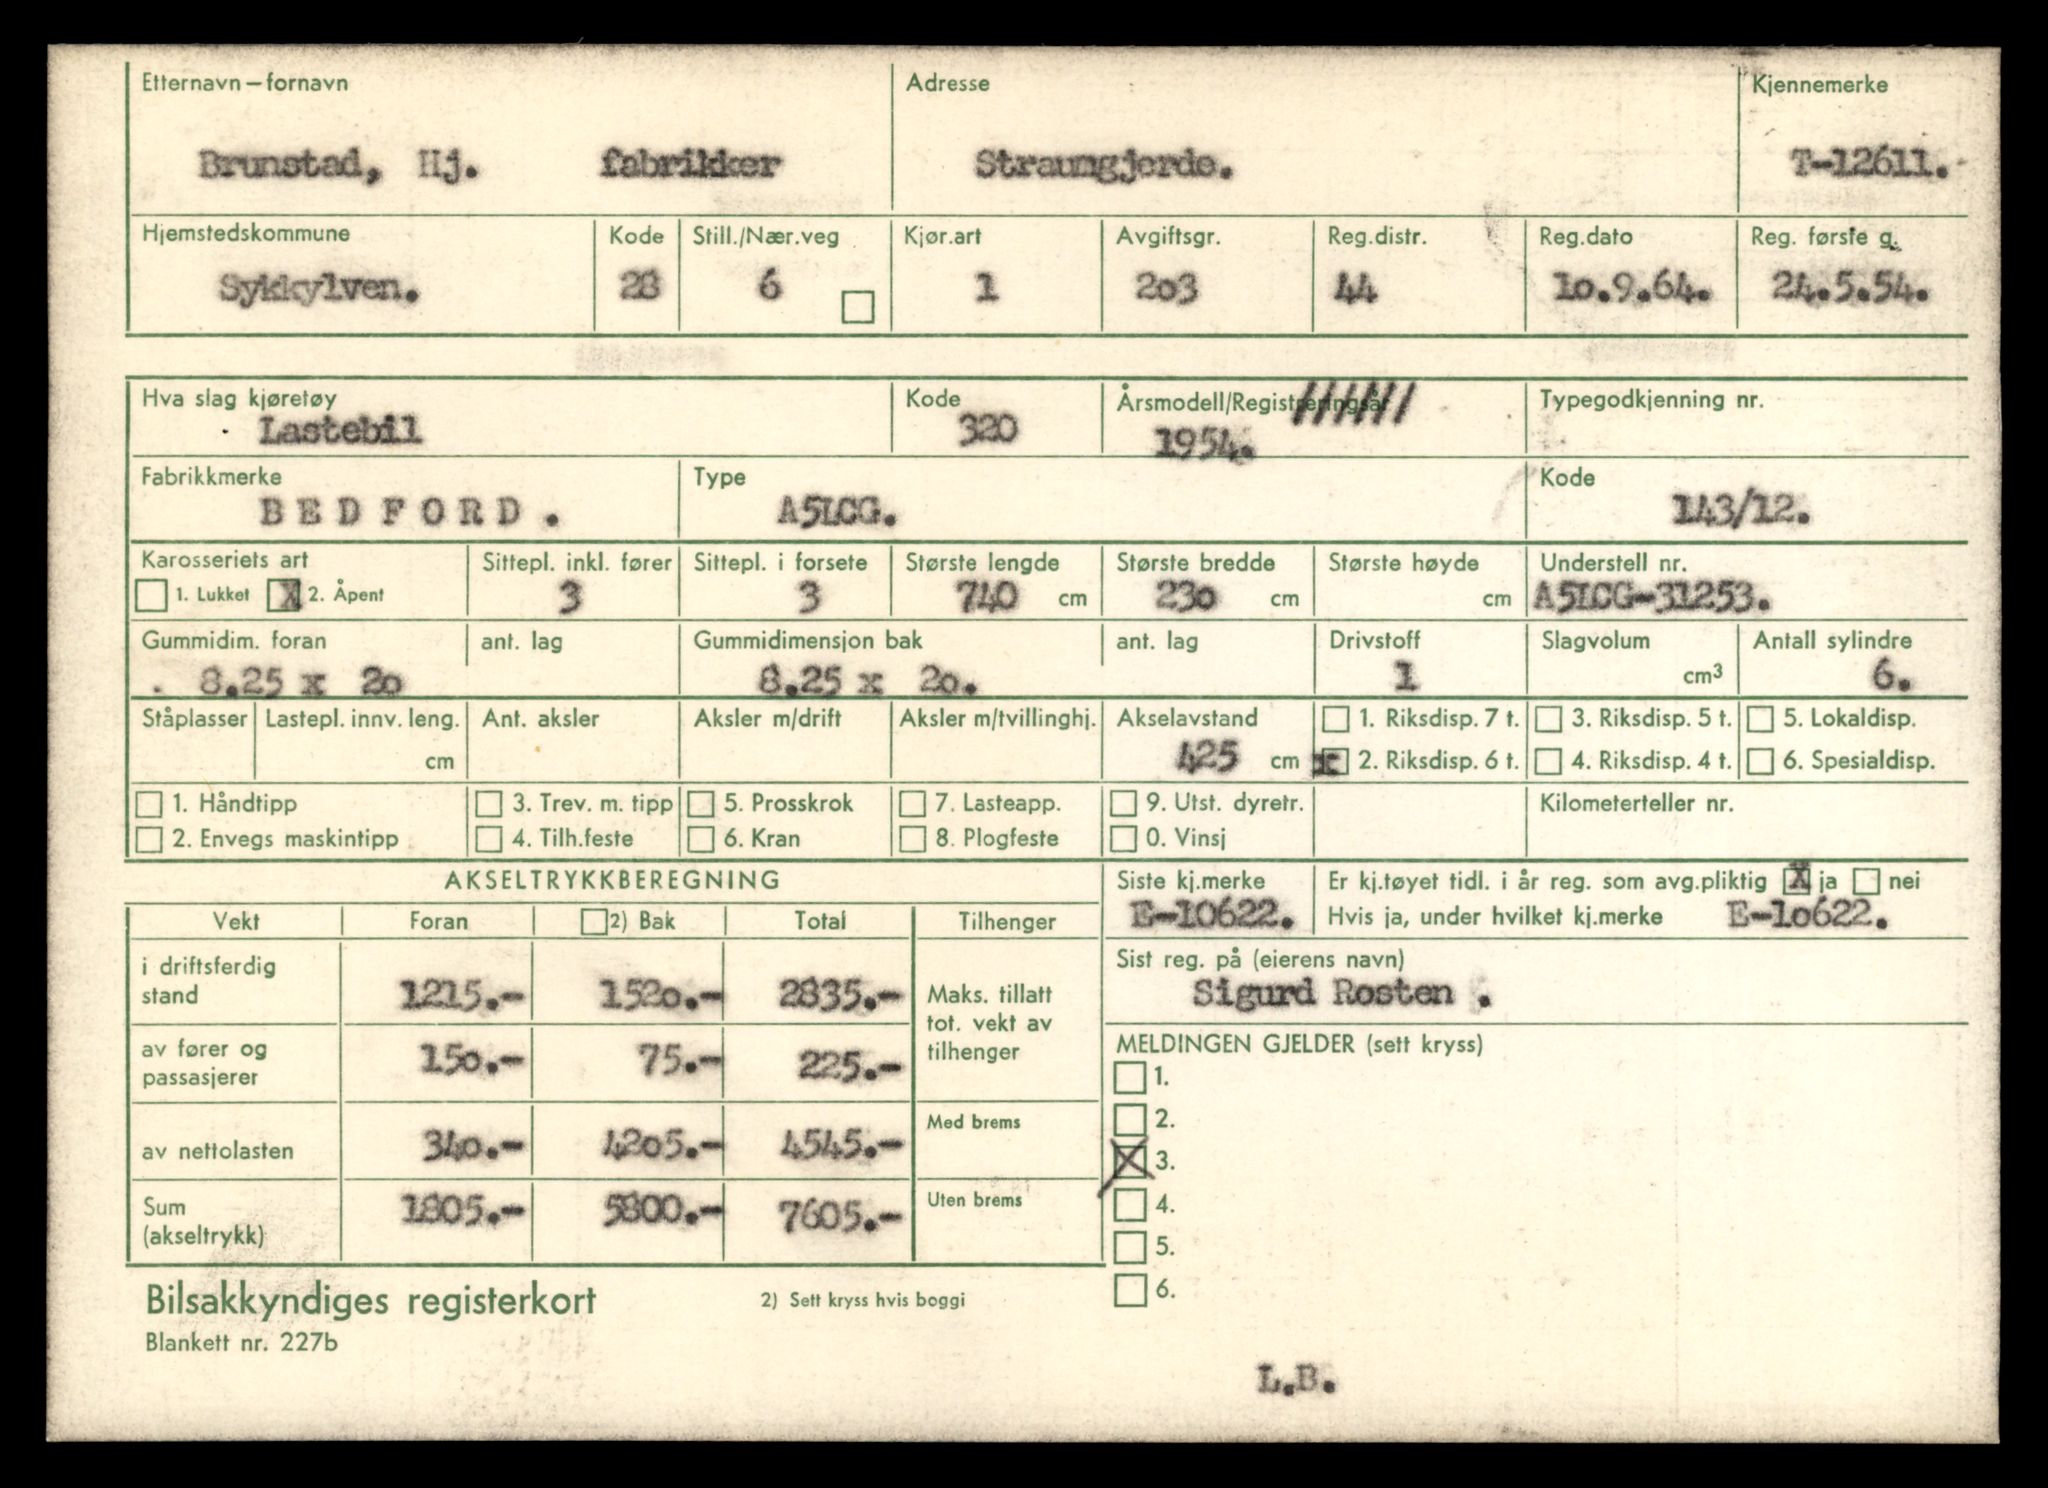 Etternavn – fornavn Adresse Kjennemerke
Brunstad, Hj. fabrikker Straumgjerde. T-12611.
Hjemstedskommune Kode Still./Nær.veg Kjør.art Avgiftsgr. Reg.distr. Reg.dato Reg. første g.
Sykkylven. 28 6 1 203 44 10.9.64. 24.5.54.
Hva slag kjøretøy Kode Årsmodell/Registreringsår Typegodkjenning nr.
Lastebil 320 1954.
Fabrikkmerke Type Kode
BEDFORD. A5LCG. 143/12.
Karosseriets art Sittepl. inkl. fører Sittepl. i forsete Største lengde Største bredde Største høyde Understell nr.
1. Lukket X 2. Åpent 3 3 740 cm 230 cm cm A5LCG-31253.
Gummidim. foran ant. lag Gummidimensjon bak ant. lag Drivstoff Slagvolum Antall sylindre
8.25 x 20 8.25 x 20. 1 cm3 6.
Ståplasser Lastepl. innv. leng. Ant. aksler Aksler m/drift Aksler m/tvillinghj. Akselavstand 1. Riksdisp. 7 t. 3. Riksdisp. 5 t. 5. Lokaldisp.
cm 425 cm x 2. Riksdisp. 6 t. 4. Riksdisp. 4 t. 6. Spesialdisp.
1. Håndtipp 3. Trev. m. tipp 5. Prosskrok 7. Lasteapp. 9. Utst. dyretr. Kilometerteller nr.
2. Envegs maskintipp 4. Tilh.feste 6. Kran 8. Plogfeste 0. Vinsj
AKSELTRYKKBEREGNING Siste kj.merke Er kj.tøyet tidl. i år reg. som avg.pliktig X ja nei
E-10622. Hvis ja, under hvilket kj.merke E-10622.
Vekt Foran 2) Bak Total Tilhenger
Sist reg. på (eierens navn)
Sigurd Rosten .
i driftsferdig stand 1215.- 1520.- 2835.- Maks. tillatt tot. vekt av tilhenger
MELDINGEN GJELDER (sett kryss)
av fører og passasjerer 150.- 75.- 225.-
1.
Med brems 2.
av nettolasten 340.- 4205.- 4545.- X 3.
Sum (akseltrykk) 1805.- 5800.- 7605.- Uten brems 4.
5.
6.
Bilsakkyndiges registerkort 2) Sett kryss hvis boggi
Blankett nr. 227b
L.B.